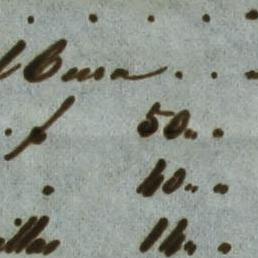 l Cura . . .
. f 50 " .
. 40 " .
illas 14 " .